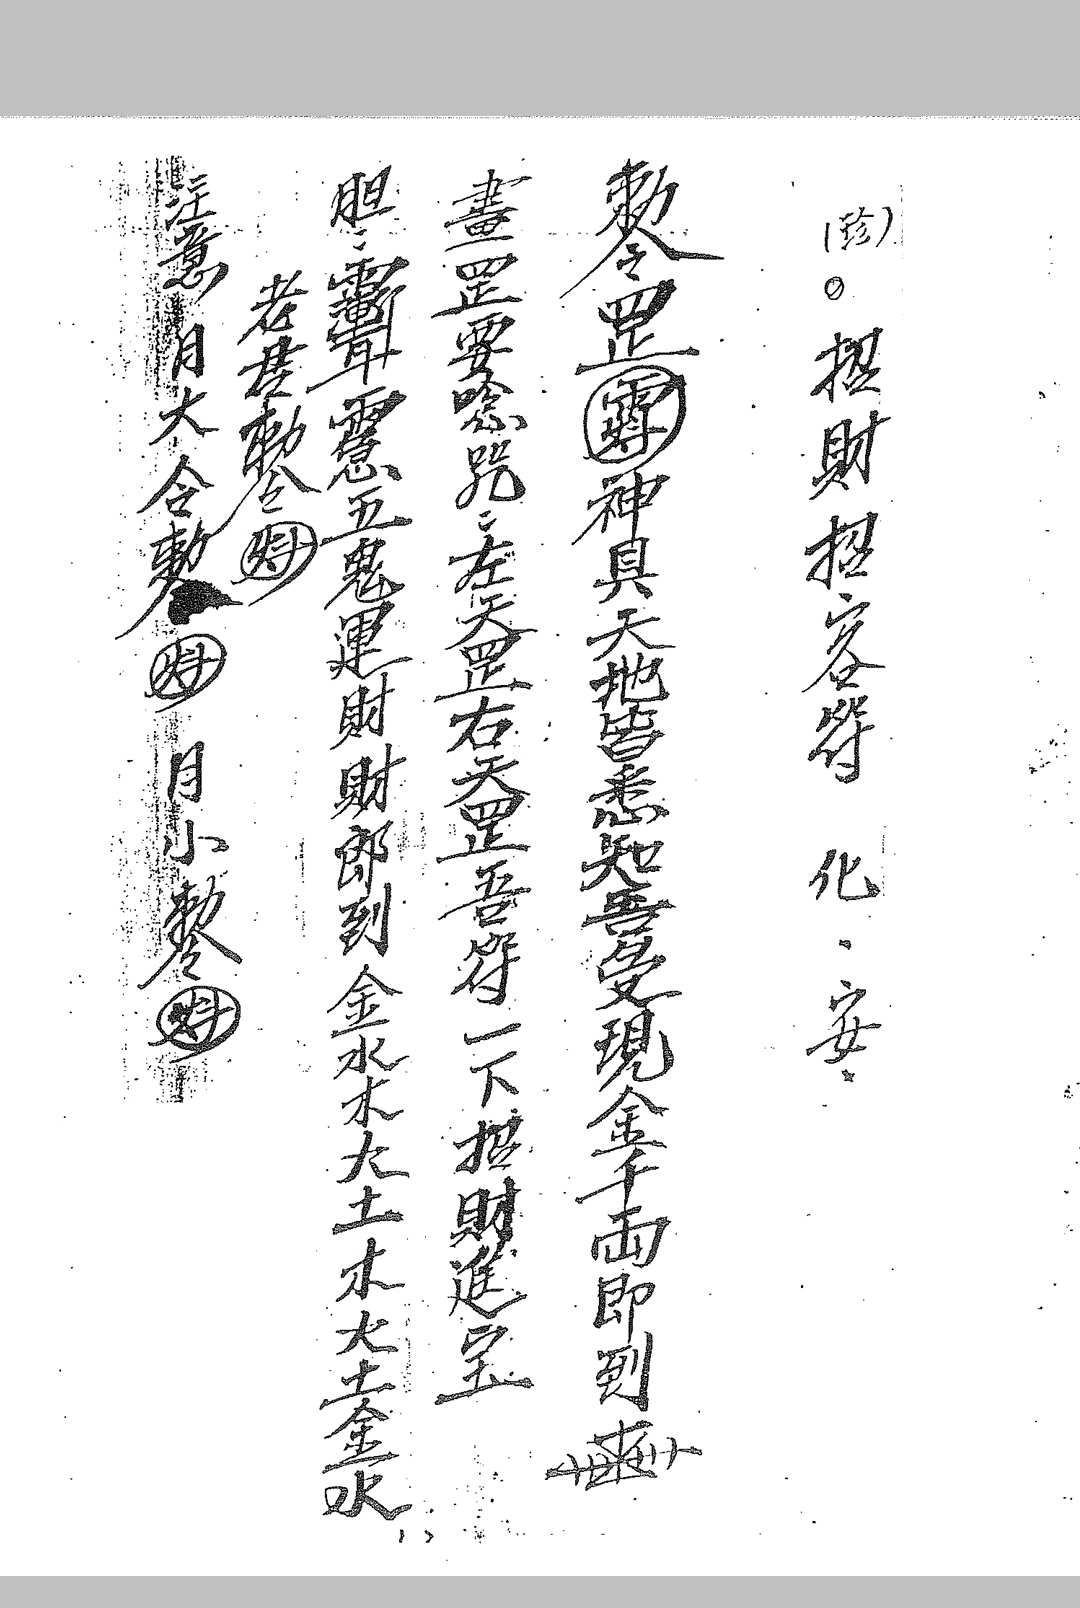 (珍)
招財招客符 化、安、
敕令罡 神具天地皆悉知吾受現金千両即到
畫罡要唸咒:左天罡右天罡吾符一下招財進宝
胆: 五鬼運財財郎到金水木火土木火土金水
老君敕令
注意 月大合敕令 月小敕令